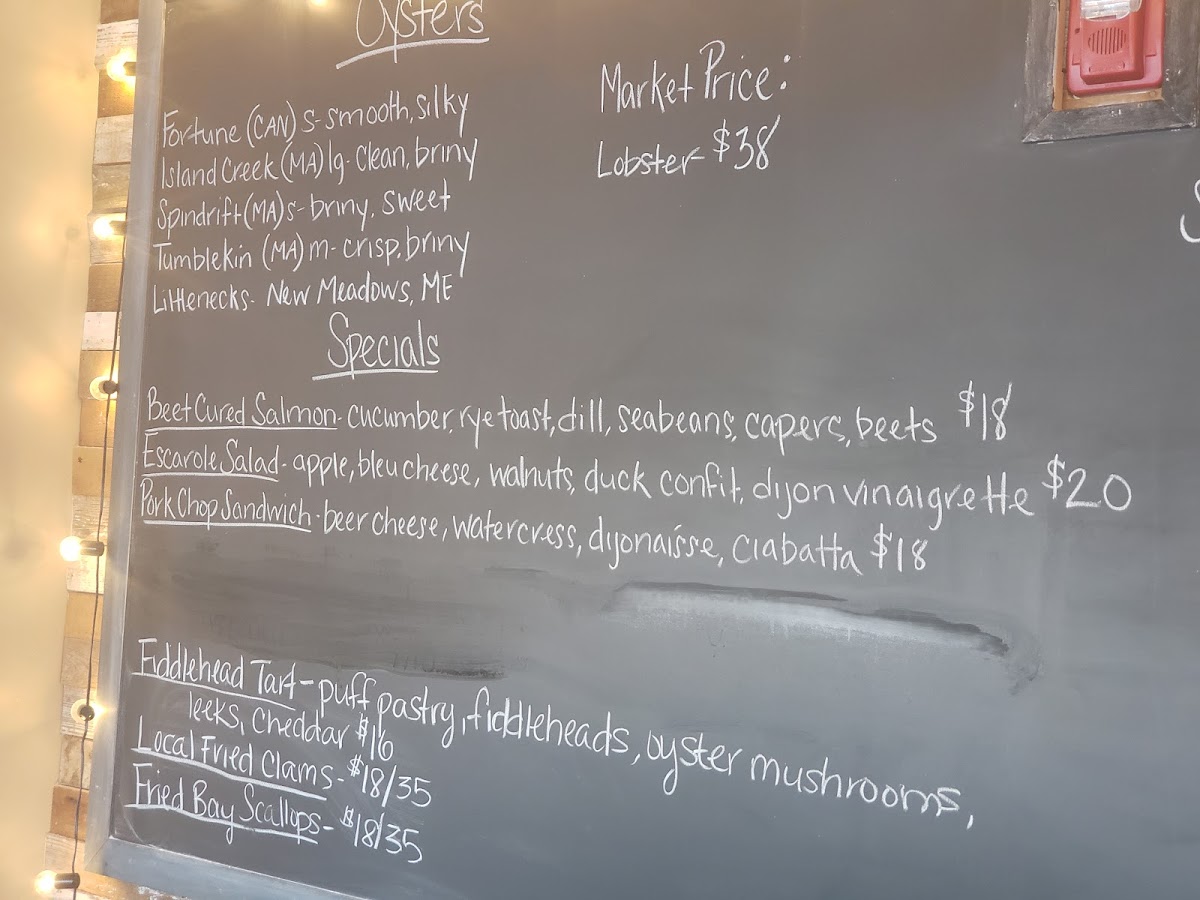 Oysters
Fortune (CAN) s- smooth, silky
Island Creek (MA) lg- Clean, briny
Spindrift (MA) s- briny, sweet
Tumblekin (MA) m- crisp, briny
Littlenecks- New Meadows, ME
Market Price:
Lobster- $38
Specials
Beet Cured Salmon- cucumber, rye toast, dill, seabeans, capers, beets $18
Escarole Salad- apple, bleu cheese, walnuts, duck confit, dijon vinaigrette $20
Pork Chop Sandwich- beer cheese, watercress, dijonaisse, ciabatta $18
Fiddlehead Tart- puff pastry, fiddleheads, oyster mushrooms,
leeks, cheddar $16
Local Fried Clams- $18/35
Fried Bay Scallops- $18/35